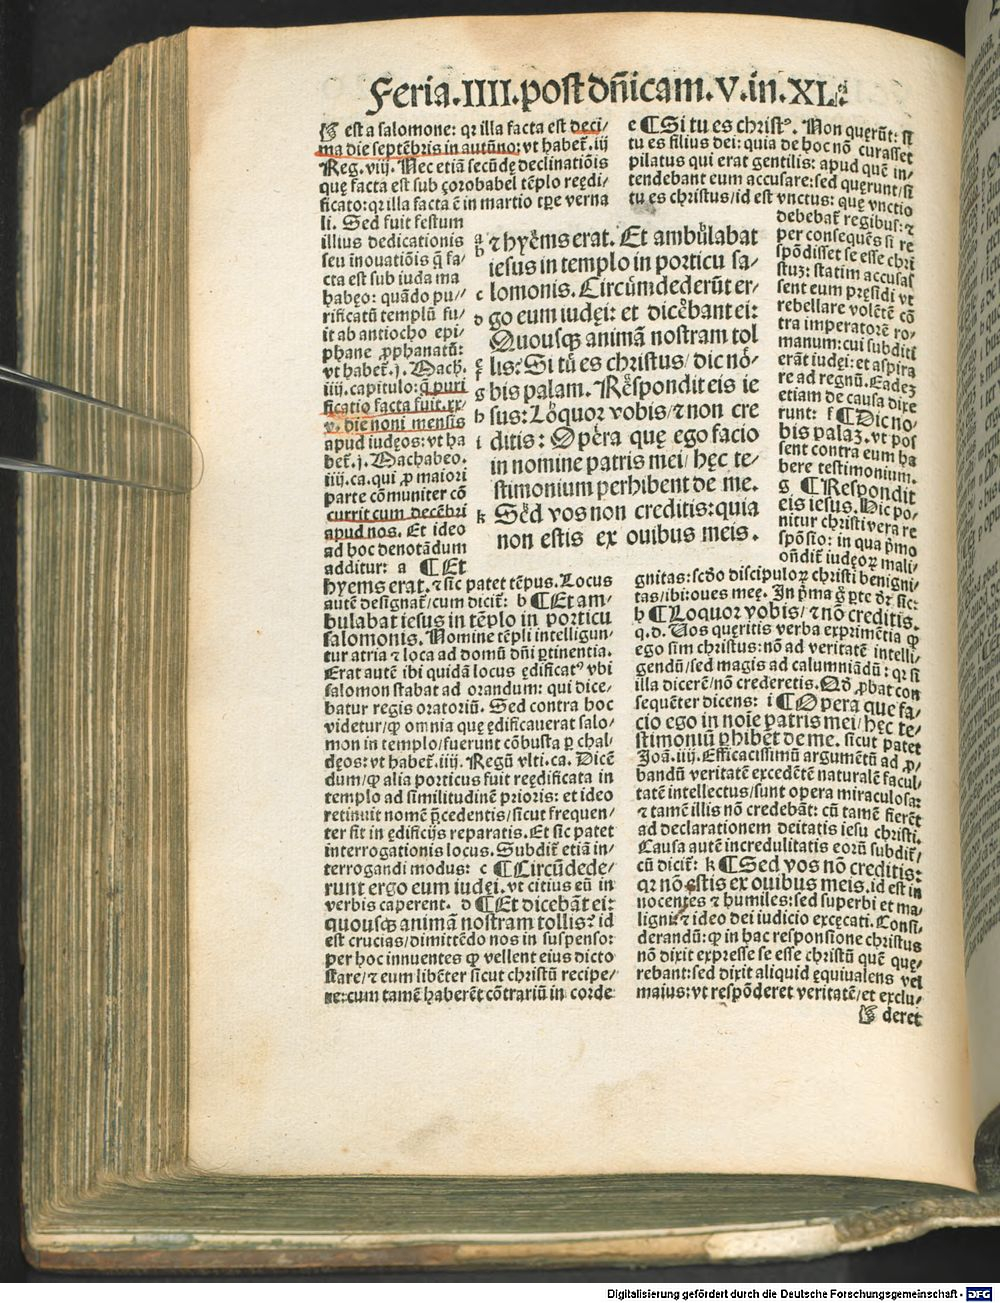 Feria.IIII.post dñicam.V.in.XL.
☞ est a salomone: qꝛ illa facta est deci/
ma die septẽbris in autũno: vt habet̃.iij
Reg.viij. Nec etiã secũdę declinatiõis
quę facta est sub çoꝛobabel tẽplo reędi/
ficato: qꝛ illa facta ẽ in martio tꝑe verna
li. Sed fuit festum
illius dedicationis
seu inouatiõis q̃ fa/
cta est sub iuda ma
habęo: quãdo pu//
rificatũ templũ fu/
it ab antiocho epi/
phane ꝓphanatũ:
vt habet̃.j. Mach.
iiij. capitulo: q̃ puri
ficatio facta fuit.xx/
v. die noni mensis
apud iudęos: vt ha
bet̃.j. Machabeo.
iiij.ca. qui ꝓ maioꝛi
parte cõmuniter cõ
currit cum decẽbꝛi
apud nos. Et ideo
ad hoc denotãdum
additur: a ¶ Et
hyems erat. ⁊ sic patet tẽpus. Locus
autẽ designat̃/cum dicit̃: b ¶ Et am/
bulabat iesus in tẽplo in poꝛticu
salomonis. Nomine tẽpli intelligun/
tur atria ⁊ loca ad domũ dñi ꝑtinentia.
Erat autẽ ibi quidã locus ędificatꝰ vbi
salomon stabat ad oꝛandum: qui dice/
batur regis oꝛatoꝛiũ. Sed contra hoc
videtur/ꝙ omnia quę ędificauerat salo/
mon in templo/fuerunt cõbusta ꝑ chal/
dęos: vt habet̃.iiij. Regũ vlti.ca. Dicẽ
dum/ꝙ alia poꝛticus fuit reędificata in
templo ad similitudinẽ pꝛioꝛis: et ideo
retinuit nomẽ p̃cedentis/sicut frequen/
ter fit in ędificijs reparatis. Et sic patet
interrogationis locus. Subdit̃ etiã in/
terrogandi modus: c ¶ Circũdede/
runt ergo eum iudęi. vt citius eũ in
verbis caperent. d ¶ Et dicebãt ei:
quousqꝫ animã nostram tollis? id
est crucias/dimittẽdo nos in suspenso:
per hoc innuentes ꝙ vellent eius dicto
stare/⁊ eum libẽter sicut chꝛistũ recipe/
re: cum tamẽ haberẽt cõtrariũ in coꝛde
a b ⁊ hyẽms erat. Et ambũlabat
iesus in templo in poꝛticu sa/
c lomonis. Circũmdederũt er/
d go eum iudęi: et dicẽbant ei:
Quousqꝫ animã nostram tol
e f lis? Si tũ es chꝛistus/ dic nõ/
g bis palam. Respondit eis ie
h sus: Loquoꝛ vobis/⁊ non cre
i ditis: Opẽra quę ego facio
in nomine patris mei/ hęc te/
stimonium perhibent de me.
k Sẽd vos non creditis: quia
non estis ex ouibus meis.
e ¶ Si tu es chꝛistꝰ. Non querũt: si
tu es filius dei: quia de hoc nõ curasset
pilatus qui erat gentilis: apud quẽ in/
tendebant eum accusare: sed quęrunt/si
tu es chꝛistus/id est vnctus: quę vnctio
debebat̃ regibus: ⁊
per consequẽs si re
spõdisset se esse chꝛi
stuꝫ: statim accusas
sent eum pręsidi vt
rebellare volẽtẽ cõ
tra imperatoꝛẽ ro/
manum: cui subditi
erãt iudęi: et aspira
re ad regnũ. Eadeꝫ
etiam de causa dixe
runt: f ¶ Dic no/
bis palaꝫ. vt pos
sent contra eum ha
bere testimonium.
g ¶ Respondit
eis iesus. Hic po/
nitur chꝛisti vera re
spõsio: in qua pꝛimo
oñdit̃ iudęoꝝ mali/
gnitas: scd̃o discipuloꝝ chꝛisti benigni/
tas/ibi: oues męę. In pꝛima g̊ ꝑte dr̃ sic:
h ¶ Loquoꝛ vobis/ ⁊ nõ creditis.
q.d. Uos queritis verba expꝛimẽtia ꝙ
ego sim chꝛistus: nõ ad veritatẽ intelli/
gendũ/sed magis ad calumniãdũ: qꝛ si
illa dicerẽ/nõ crederetis. Qd̃ ꝓbat con
sequẽter dicens: i ¶ Opera que fa/
cio ego in noĩe patris mei/ hęc te/
stimoniũ ꝑhibẽt de me. sicut patet
Joã.iiij. Efficacissimũ argumẽtũ ad ꝓ/
bandũ veritatẽ excedẽtẽ naturalẽ facul/
tatẽ intellectus/sunt opera miraculosa:
⁊ tamẽ illis nõ credebãt: cũ tamẽ fierẽt
ad declarationem deitatis iesu chꝛisti.
Causa autẽ incredulitatis eoꝛũ subdit̃/
cũ dicit̃: k ¶ Sed vos nõ creditis:
qꝛ nõ estis ex ouibus meis. id est in
nocentes ⁊ humiles: sed superbi et ma/
ligni: ⁊ ideo dei iudicio excęcati. Consi/
derandũ: ꝙ in hac responsione chꝛistus
nõ dixit expꝛesse se esse chꝛistũ quẽ quę/
rebant: sed dixit aliquid ęquiualens vel
maius: vt respõderet veritatẽ/et exclu/
☞ deret
Digitalisierung gefördert durch die Deutsche Forschungsgemeinschaft - DFG